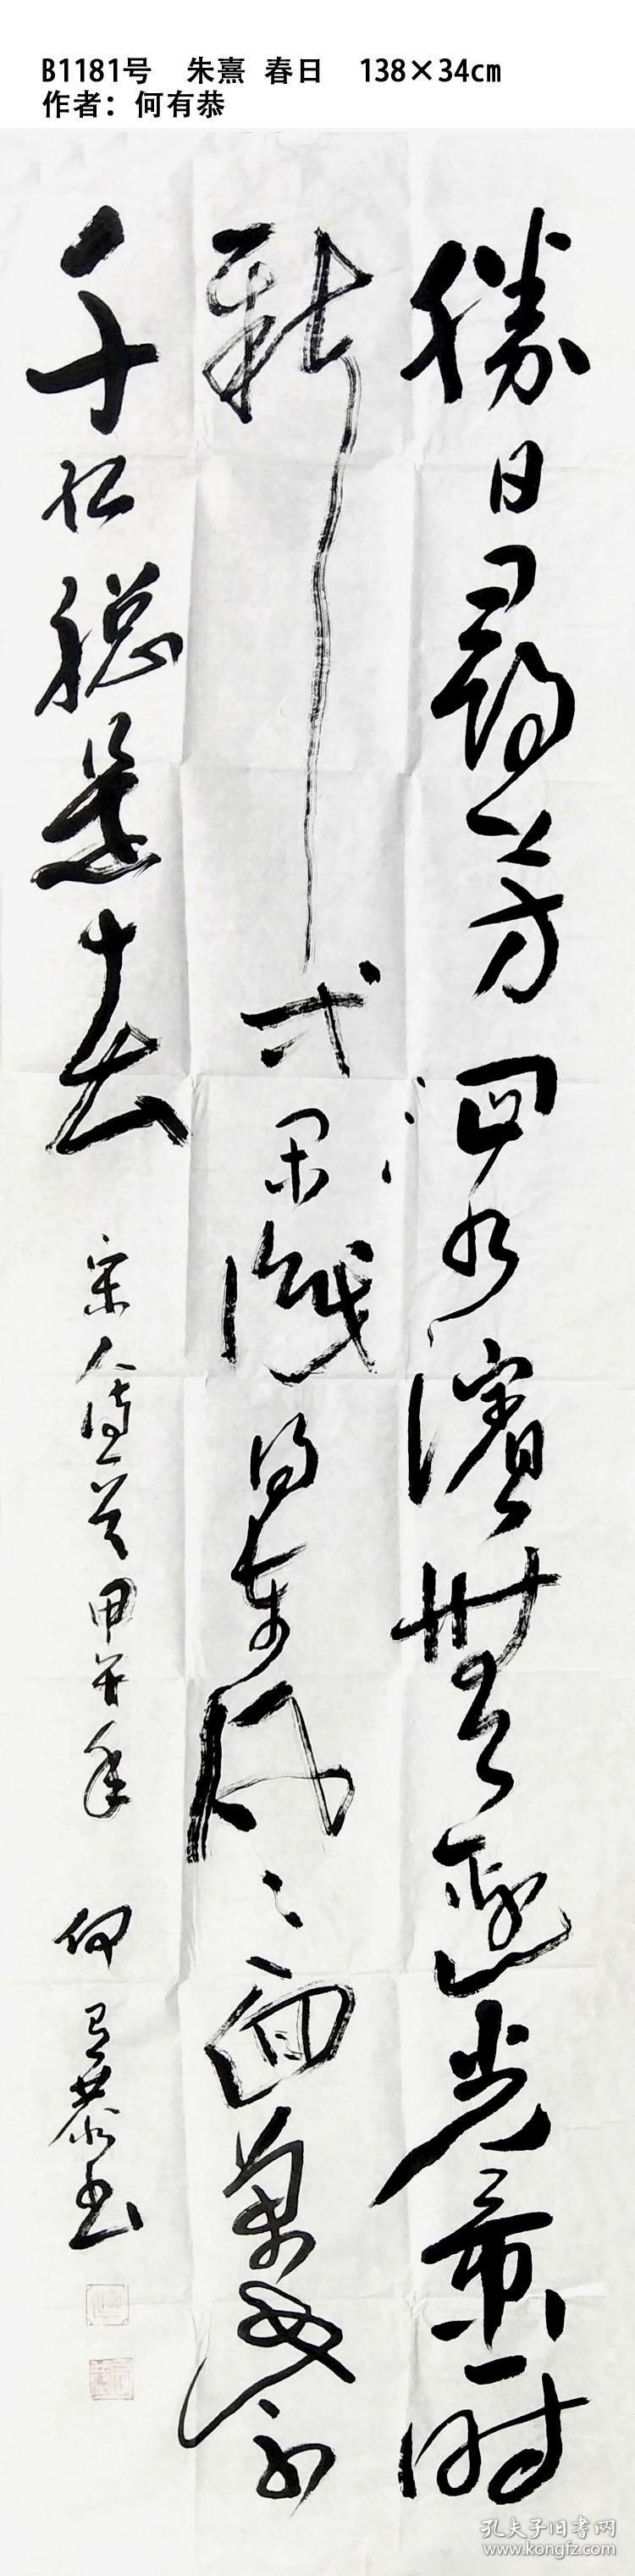 B1181号 朱熹 春日 138×34cm
作者：何有恭
勝日尋芳泗水濱無邊光景一時
新等閑識得東風面萬紫
千紅總是春 宋人詩一首甲午年 何有恭书
孔夫子旧书网
www.kongfz.com